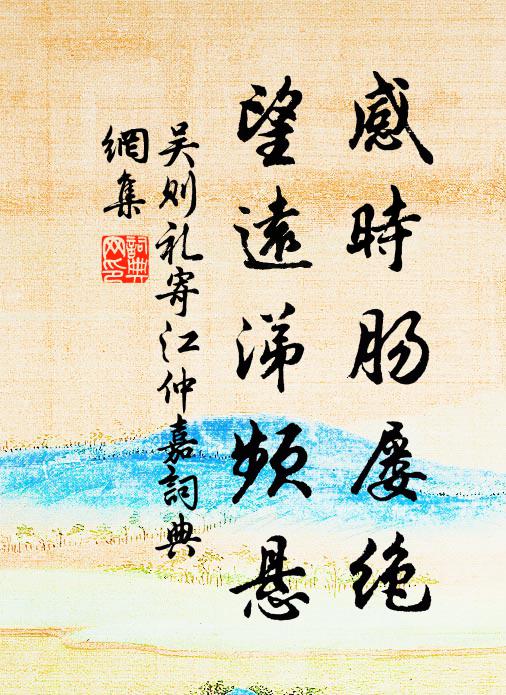 感時肠屡绝
望遠涕頻悬
吴则礼寄江仲嘉詞典
網集
詞典
网印